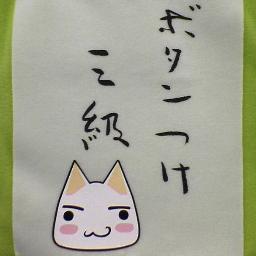 ボタンつけ
三級